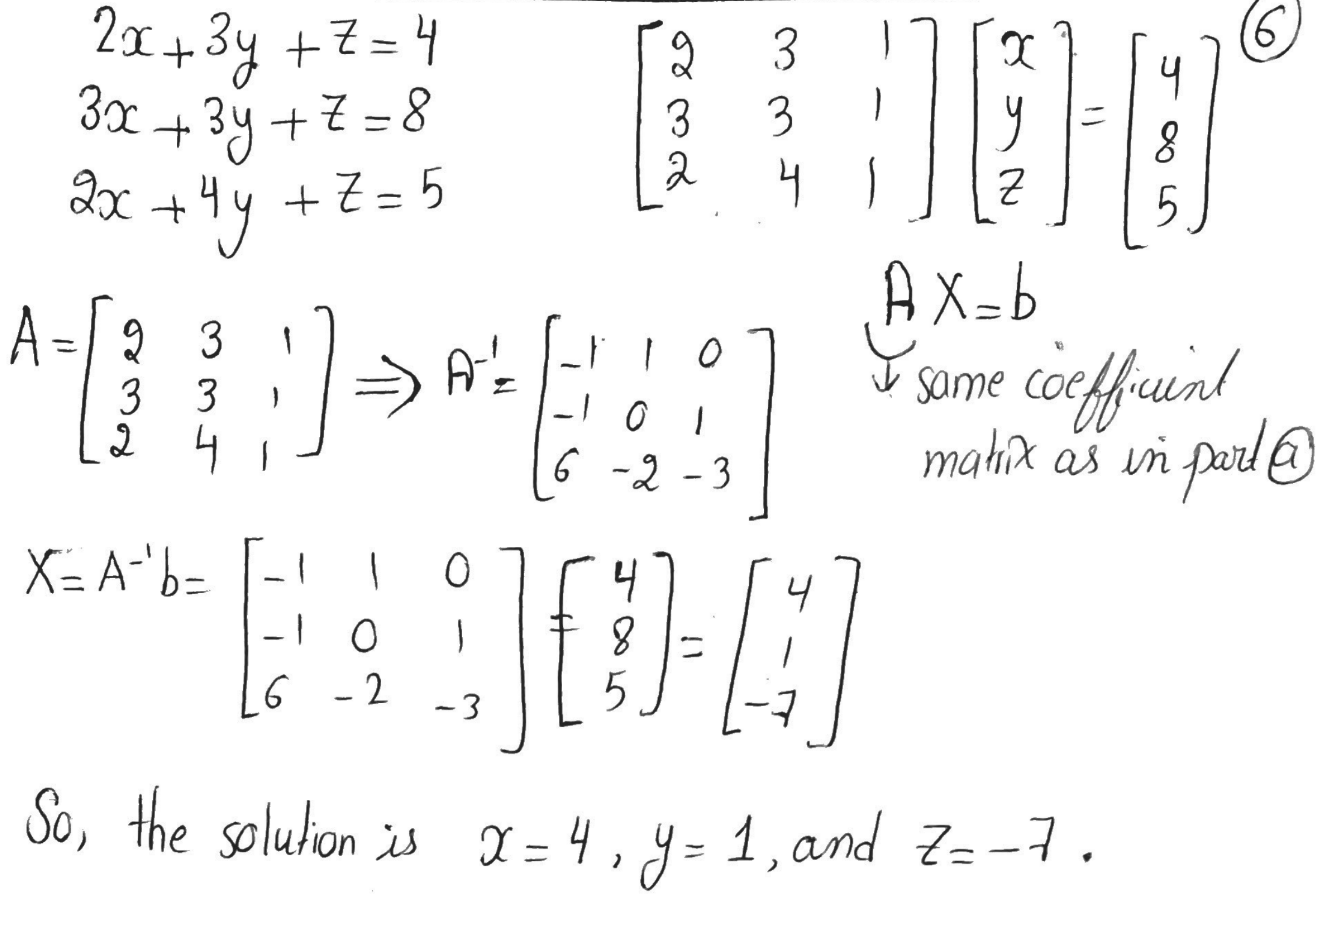 2x + 3y + z = 4
3x + 3y + z = 8
2x + 4y + z = 5
[2 3 1; 3 3 1; 2 4 1] [x; y; z] = [4; 8; 5]
⑥
A X = b
↓ same coefficient
matrix as in part ⓐ
A = [2 3 1; 3 3 1; 2 4 1] ⟹ A⁻¹ = [-1 1 0; -1 0 1; 6 -2 -3]
X = A⁻¹b = [-1 1 0; -1 0 1; 6 -2 -3] = [4; 8; 5] = [4; 1; -7]
So, the solution is x = 4, y = 1, and z = -7.